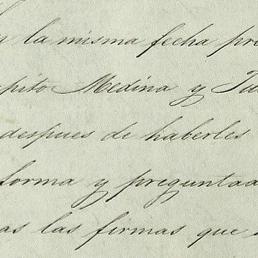 y la misma fecha pre
pito Medina y Ju
despues de haberles
forma y preguntad
as las firmas que